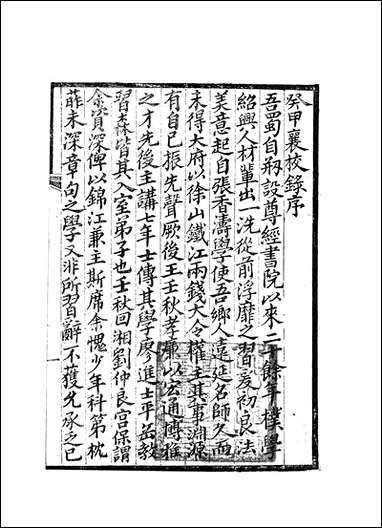 癸甲襄校錄序
吾蜀自刱設尊經書院以來二十餘年樸學
紹興人材輩出一洗從前浮靡之習爰初良法
美意起自張香濤學使吾鄉人遠延名師久而
未得大府以徐山鐵江兩錢大令權主其事淵源
有自已振先聲厥後王壬秋孝廉以宏通博雅
之才先後主講七年士傳其學廖進士平岳教
習森皆其入室弟子也壬秋回湘劉仲良宮保謂
余資深俾以錦江兼主斯席余愧少年科第枕
葄未深章句之學又非所習辭不獲允承之已